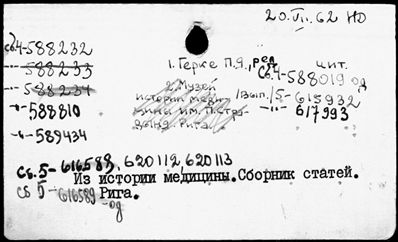 20.VI.62 НО
сб4-588232
1. Герке П.Я., ред. цит.
-"- 588233
Сб.4-588019 од
-"- 588234
2. Музей
истории меди-
/Вып./5-615932
-"- 588810
цины им. П. Стра-
-"- 617993
дынь. Рига.
-"- 589434
Сб.5-616583, 620112 620113
Из истории медицины. Сборник статей.
сб 5-616589 Рига.
од